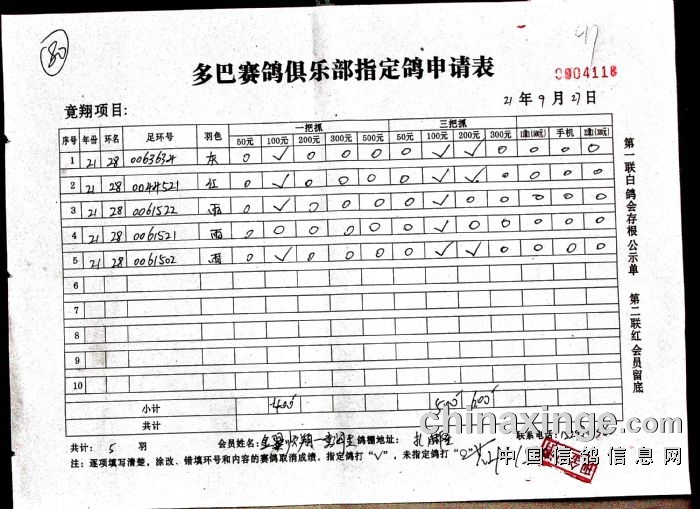 180
47
多巴赛鸽俱乐部指定鸽申请表
0904118
竟翔项目:
21年9月27日
序号 年份 环名 足环号 羽色 一把抓 三把抓
50元 100元 200元 300元 500元 50元 100元 200元 300元 手机
1 21 28 0063634 灰 0 √ 0 0 0 0 √ √ 0 0 0 0
2 21 28 0044521 红 0 √ 0 0 0 0 √ √ 0 0 0 0
3 21 28 0061522 雨 0 √ 0 0 0 0 √ 0 0 0 0 0
4 21 28 0061521 雨 0 0 0 0 0 0 0 0 0 0 0 0
5 21 28 0061502 雨 0 √ 0 0 0 0 √ √ 0 0 0 0
6
7
8
9
10
小计 400 600
共计
共计: 5 羽 会员姓名: 鸽棚地址: 联系电话:
注: 逐项填写清楚，涂改、错填环号和内容的赛鸽取消成绩。指定鸽打“√”，未指定鸽打“O”
第一联白 鸽会存根 公示单 第二联红 会员留底
chinaxinge.com
中国信鸽信息网